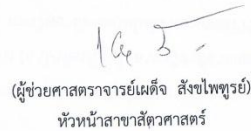 (ผู้ช่วยศาสตราจารย์เผด็จ สังขไพฑูรย์)
หัวหน้าสาขาสัตวศาสตร์